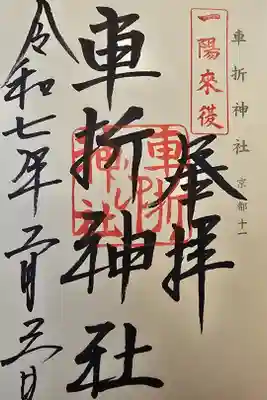 車折神社 京都十一
一陽來復
奉拝
車折神社
車折
神社
令和七年二月三日